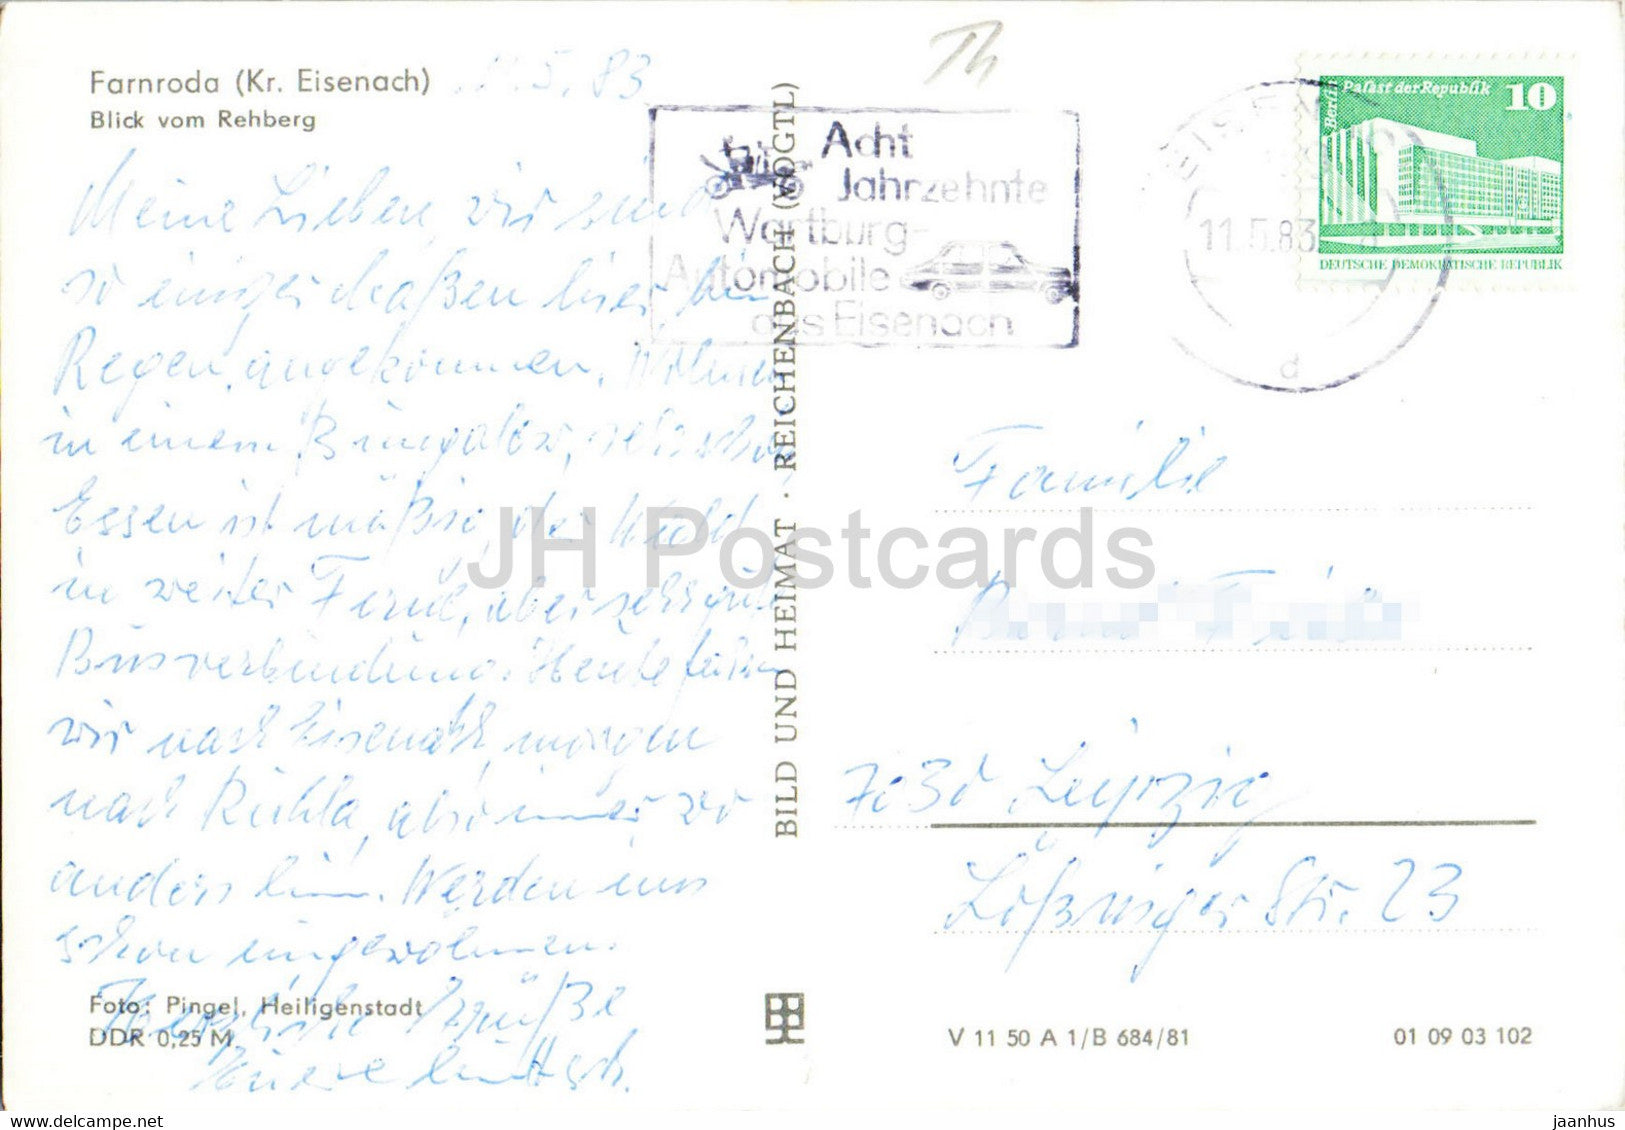 Farnroda (Kr. Eisenach)
Blick vom Rehberg
11.5.83
Meine Lieben, wir sind
so einigermaßen hier bei
Regen angekommen. Wohnen
in einem Bungalow, sehr schön,
Essen ist mäßig, der Wald
in weiter Ferne, aber sehr gute
Busverbindung. Heute fahren
wir nach Eisenach, morgen
nach Ruhla, also immer wo
anders hin. Werden uns
schon eingewöhnen.
Herzliche Grüße
Foto: Pingel, Heiligenstadt
DDR 0,25 M
BILD UND HEIMAT · REICHENBACH (VOGTL)
Th
Acht
Jahrzehnte
Wartburg-
Automobile
aus Eisenach
11.5.83
d
Berlin
Palast der Republik
10
DEUTSCHE DEMOKRATISCHE REPUBLIK
Familie
7030 Leipzig
Lößniger Str. 23
V 11 50 A 1/B 684/81
01 09 03 102
JH Postcards
www.delcampe.net
jaanhus